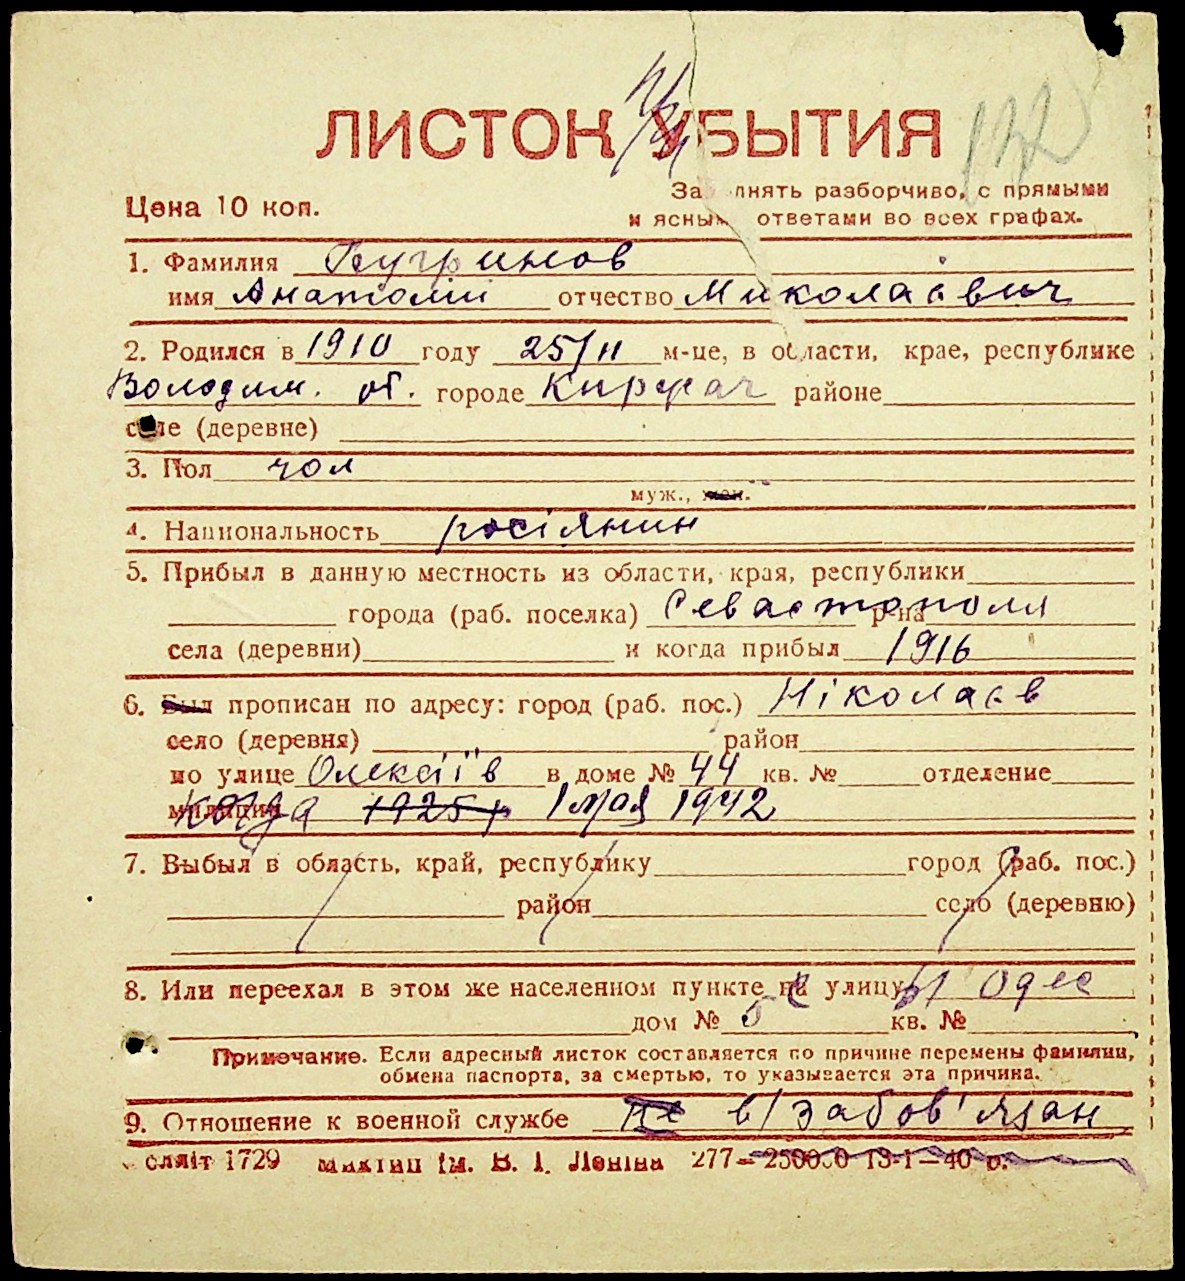 ЛИСТОК УБЫТИЯ
132
Цена 10 коп.
Заполнять разборчиво, с прямыми
и ясными ответами во всех графах.
1. Фамилия Бугринов
имя Анатолій отчество Миколаєвич
2. Родился в 1910 году 25/II м-це, в области, крае, республике
Володим. об. городе Киржач районе
селе (деревне)
3. Пол чол
муж., жен.
4. Национальность росіянин
5. Прибыл в данную местность из области, края, республики
города (раб. поселка) Севастополя р-на
села (деревни) и когда прибыл 1916
6. Был прописан по адресу: город (раб. пос.) Ніколаєв
село (деревня) район
по улице Олексіїв в доме № 44 кв. № отделение
милиции когда 1925 р 1 мая 1942
7. Выбыл в область, край, республику город (раб. пос.)
район село (деревню)
8. Или переехал в этом же населенном пункте на улицу Одес
дом № 5 кв. №
Примечание. Если адресный листок составляется по причине перемены фамилии,
обмена паспорта, за смертью, то указывается эта причина.
9. Отношение к военной службе не в/забов'язан
1729 ім. В. І. Леніна 277—250000 13-1—40 р.